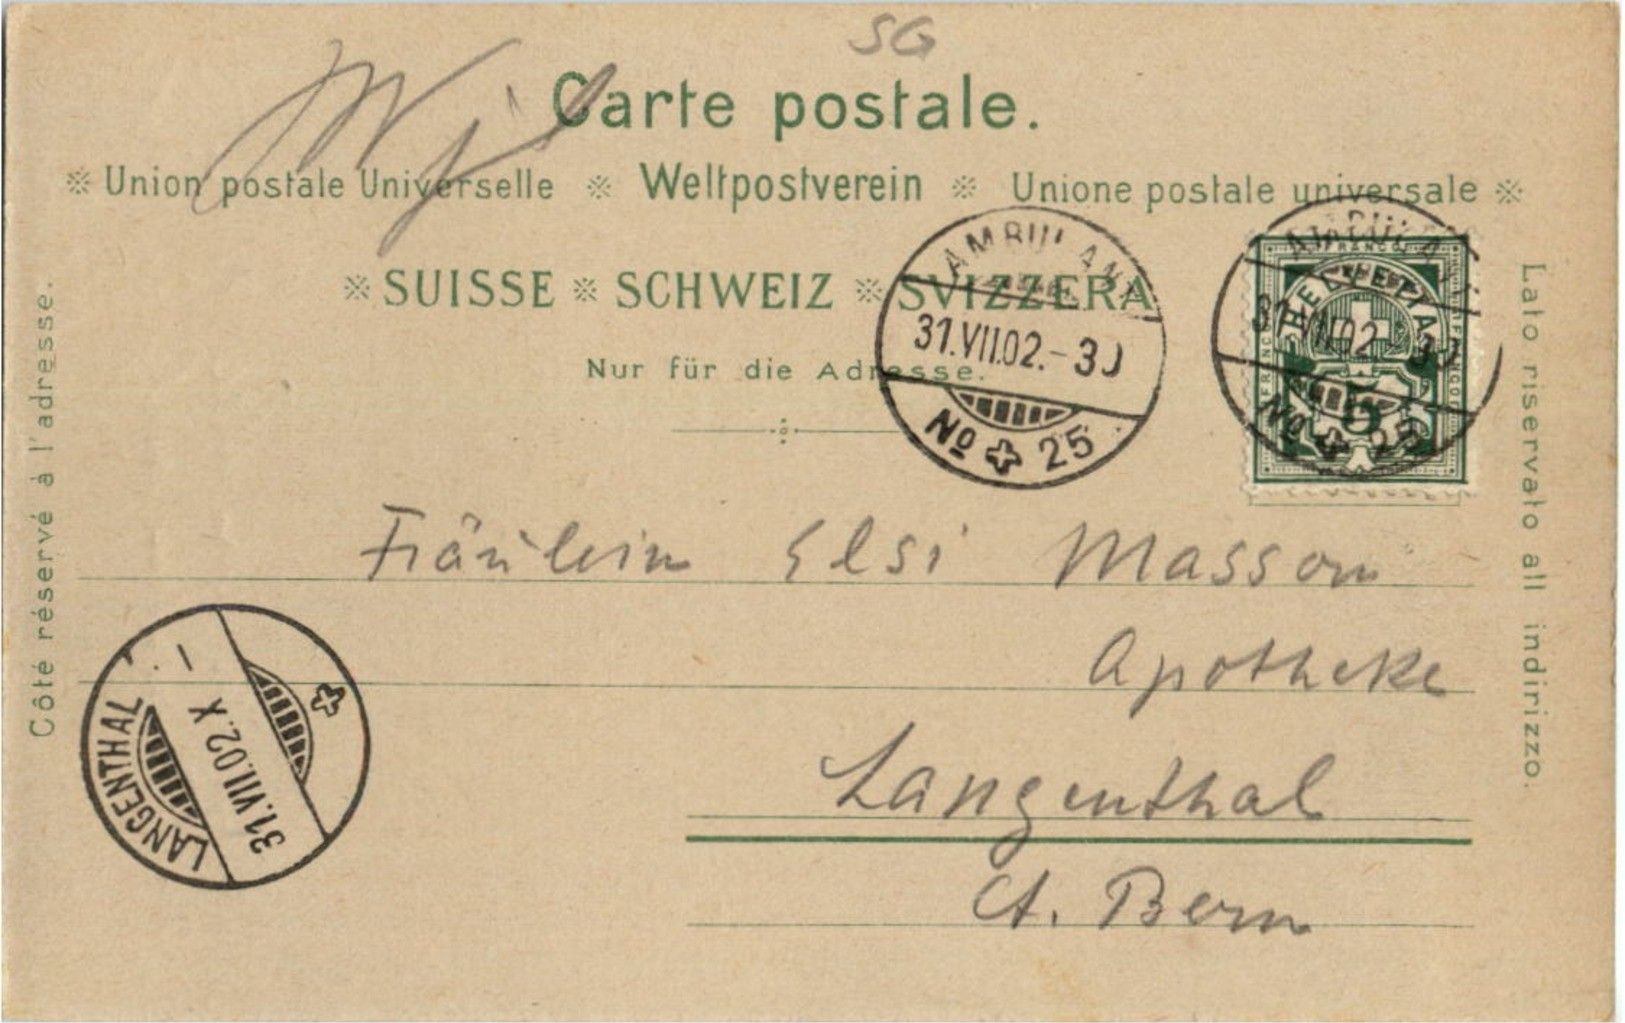 SG
Carte postale.
※ Union postale Universelle ※ Weltpostverein ※ Unione postale universale ※
※ SUISSE ※ SCHWEIZ ※ SVIZZERA
Nur für die Adresse.
Côté réservé à l'adresse.
Lato riservato all indirizzo.
AMBULANT
31.VII.02.-3
No 25
AMBULANT
31.VII.02.-3
No 25
FRANCO
HELVETIA
5
Fräulein Elsi Masson
Apotheke
Langenthal
Ct. Bern
LANGENTHAL
31.VII.02.X